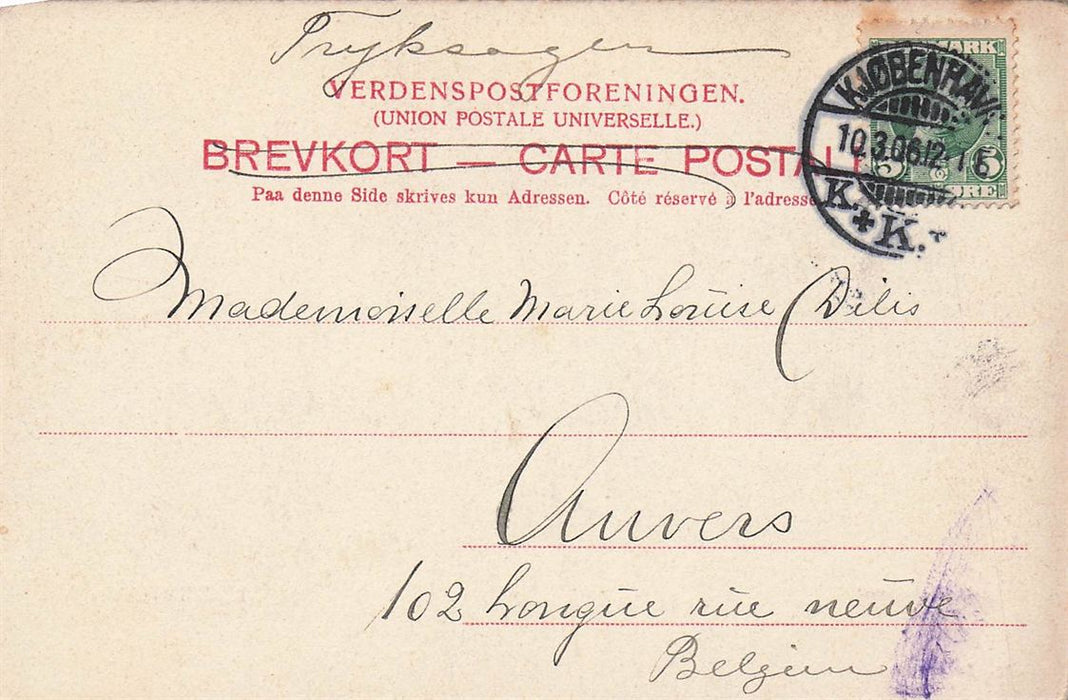 Tryksager
VERDENSPOSTFORENINGEN.
(UNION POSTALE UNIVERSELLE.)
BREVKORT — CARTE POSTAL
Paa denne Side skrives kun Adressen. Côté réservé à l'adresse
MARK
5 5
ØRE
KJØBENHAVN
10.3.06.12-1 E
K. K.
Mademoiselle Marie Louise Dilis
Anvers
102 Longue rue neuve
Belgien